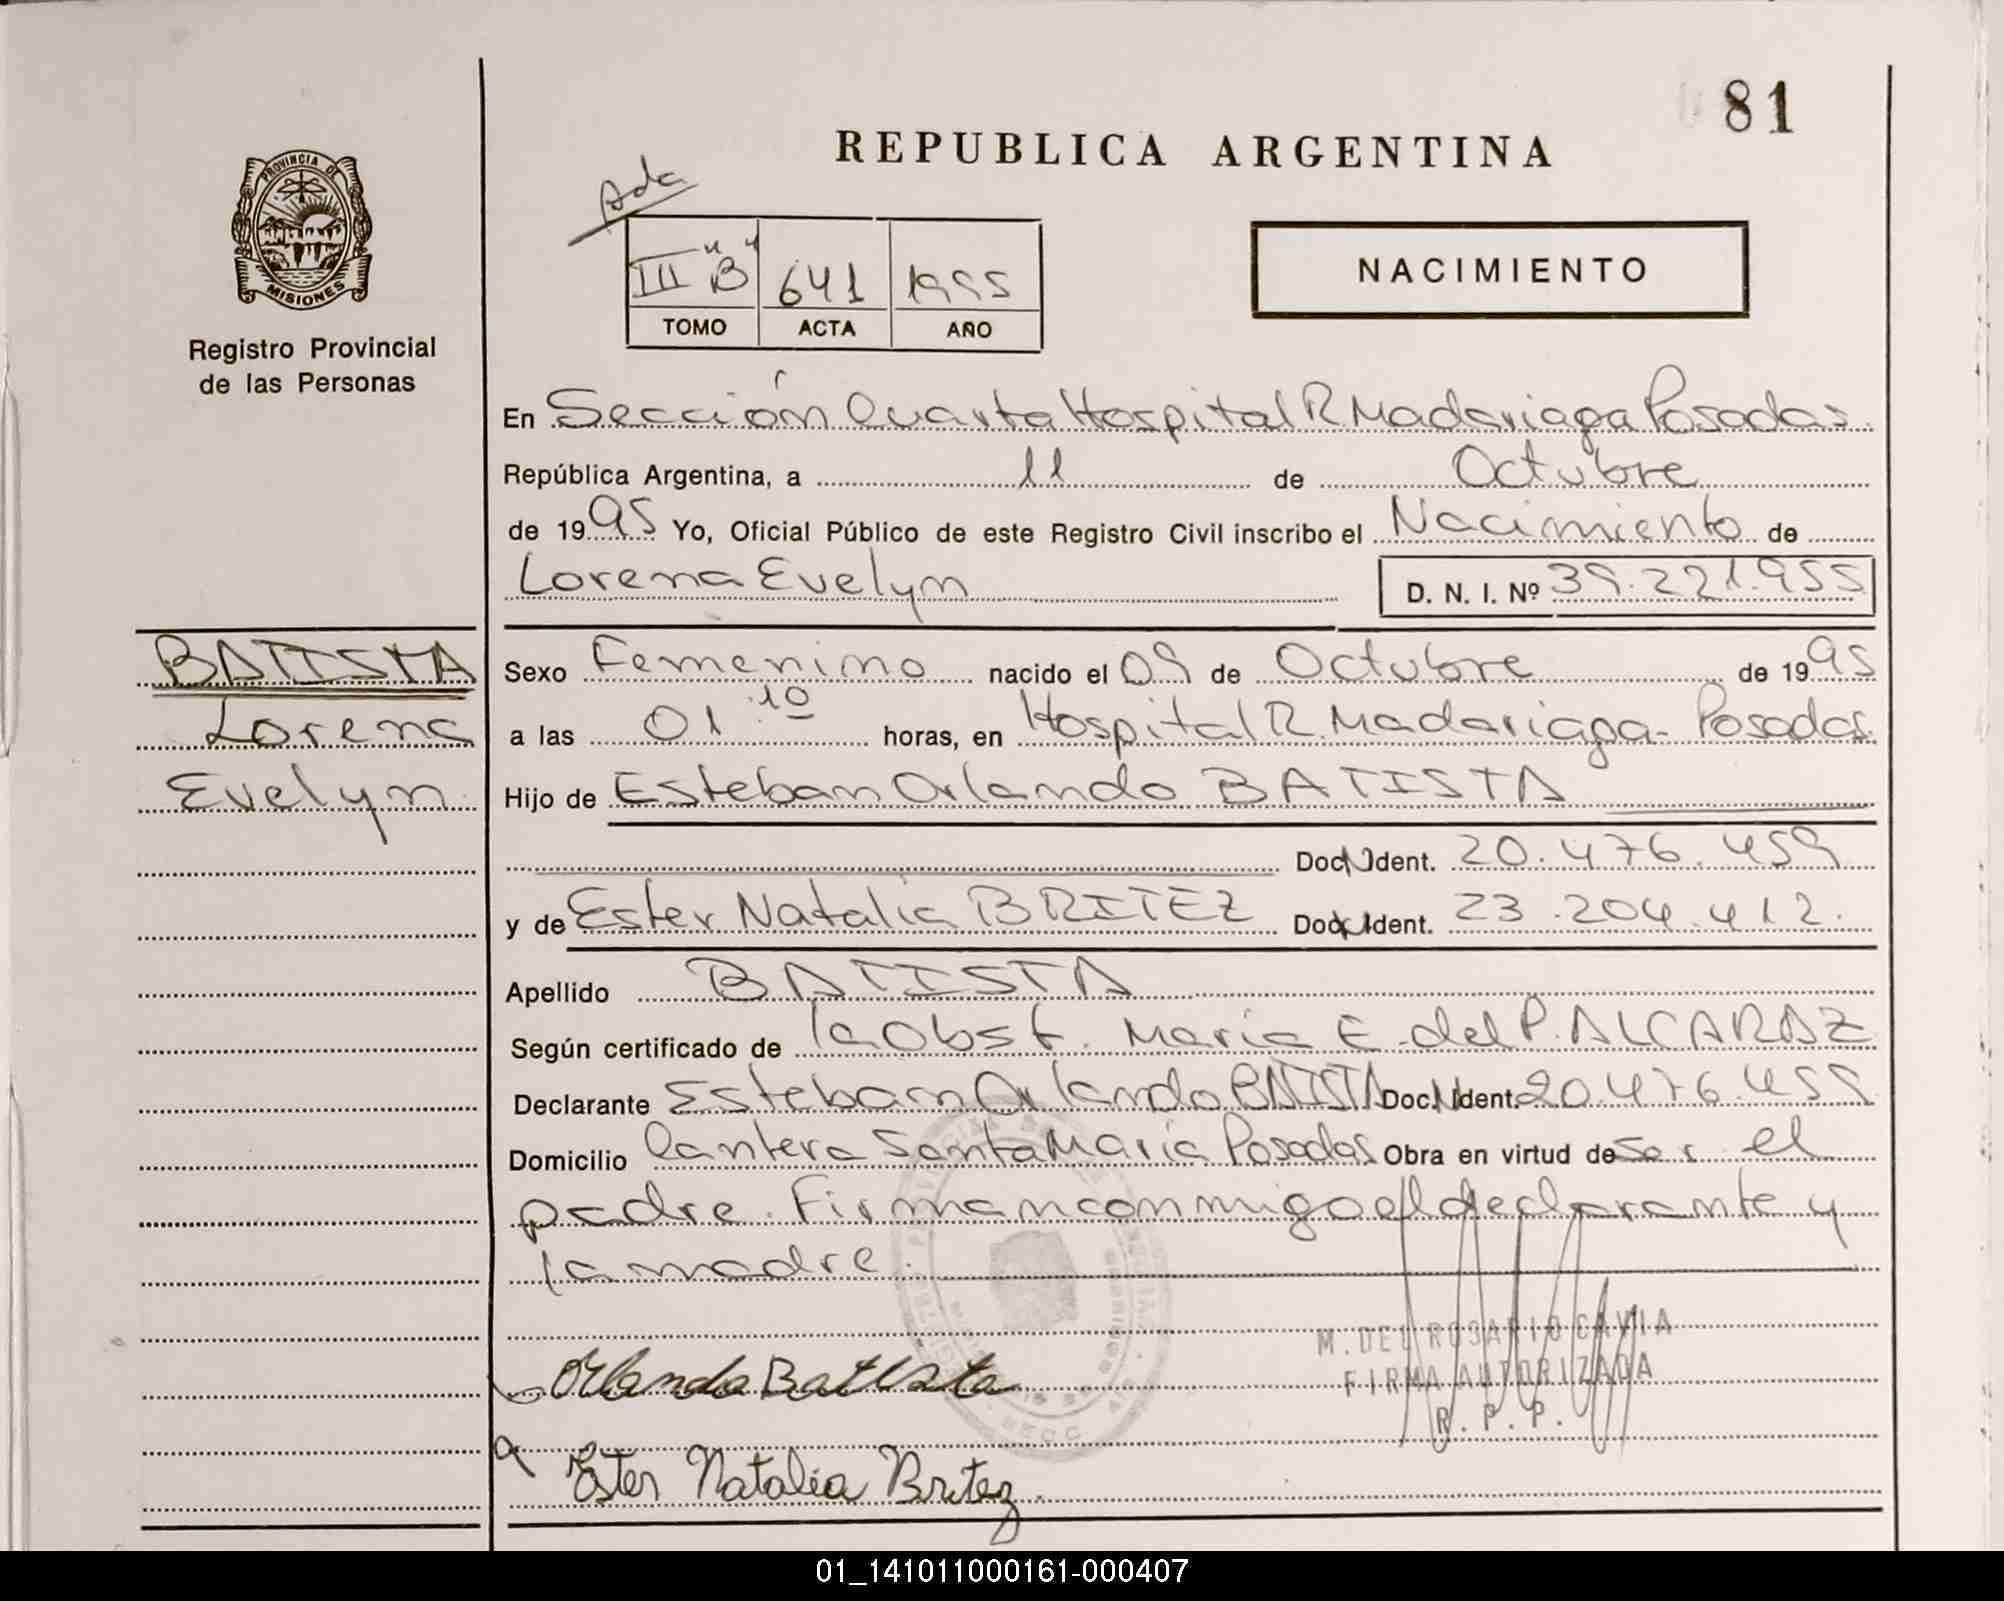 81
REPUBLICA ARGENTINA
Ada
PROVINCIA DE
MISIONES
III "B" 641 1995
TOMO ACTA AÑO
NACIMIENTO
Registro Provincial
de las Personas
En Sección Cuarta Hospital R. Madariaga Posadas
República Argentina, a 11 de Octubre
de 1995 Yo, Oficial Público de este Registro Civil inscribo el Nacimiento de
Lorena Evelyn D. N. I. Nº 39.221.955
BATISTA
Lorena
Evelyn
Sexo Femenino nacido el 09 de Octubre de 1995
a las 01:10 horas, en Hospital R. Madariaga - Posadas
Hijo de Esteban Orlando BATISTA
Doc. Ident. 20.476.459
y de Ester Natalia BRITEZ Doc. Ident. 23.204.412.
Apellido BATISTA
Según certificado de la Obst. María E. del P. ALCARAZ
Declarante Esteban Orlando BATISTA Doc. Ident. 20.476.459
Domicilio Cantera Santa María Posadas Obra en virtud de ser el
padre. Firman conmigo el declarante y
la madre.
M. DEL ROSARIO CAVIA
FIRMA AUTORIZADA
R. P. P.
Orlando Batista
Ester Natalia Britez
01_141011000161-000407